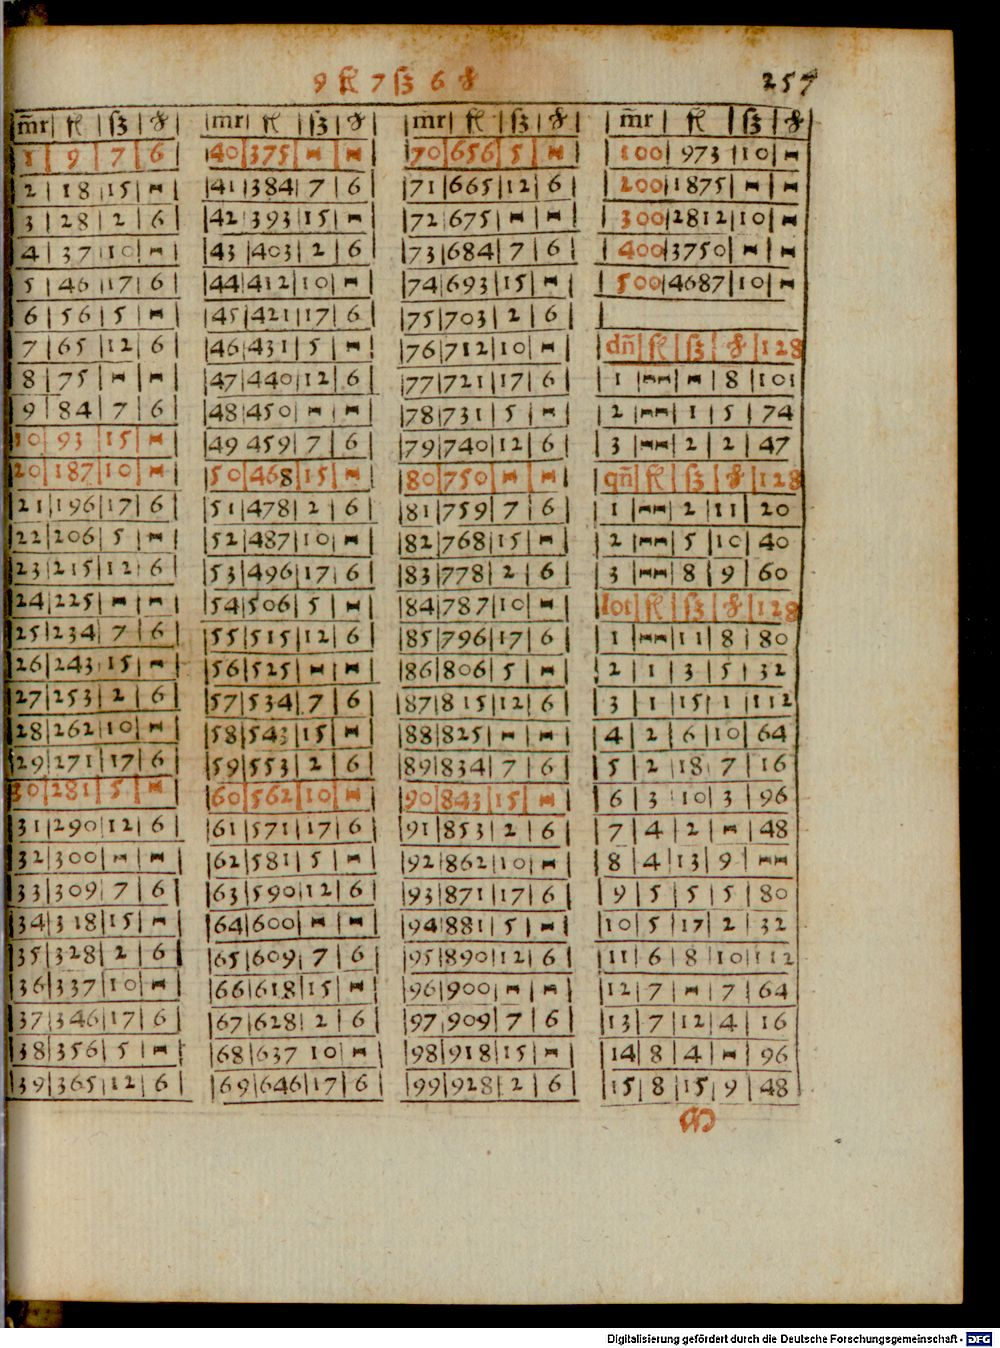 9 fl 7 ſꝫ 6 ₰
257
m̄r | fl | ſꝫ | ₰
1 | 9 | 7 | 6
2 | 18 | 15 | -
3 | 28 | 2 | 6
4 | 37 | 10 | -
5 | 46 | 17 | 6
6 | 56 | 5 | -
7 | 65 | 12 | 6
8 | 75 | - | -
9 | 84 | 7 | 6
10 | 93 | 15 | -
20 | 187 | 10 | -
21 | 196 | 17 | 6
22 | 206 | 5 | -
23 | 215 | 12 | 6
24 | 225 | - | -
25 | 234 | 7 | 6
26 | 243 | 15 | -
27 | 253 | 2 | 6
28 | 262 | 10 | -
29 | 271 | 17 | 6
30 | 281 | 5 | -
31 | 290 | 12 | 6
32 | 300 | - | -
33 | 309 | 7 | 6
34 | 318 | 15 | -
35 | 328 | 2 | 6
36 | 337 | 10 | -
37 | 346 | 17 | 6
38 | 356 | 5 | -
39 | 365 | 12 | 6
m̄r | fl | ſꝫ | ₰
40 | 375 | - | -
41 | 384 | 7 | 6
42 | 393 | 15 | -
43 | 403 | 2 | 6
44 | 412 | 10 | -
45 | 421 | 17 | 6
46 | 431 | 5 | -
47 | 440 | 12 | 6
48 | 450 | - | -
49 459 | 7 | 6
50 | 468 | 15 | -
51 | 478 | 2 | 6
52 | 487 | 10 | -
53 | 496 | 17 | 6
54 | 506 | 5 | -
55 | 515 | 12 | 6
56 | 525 | - | -
57 | 534 | 7 | 6
58 | 543 | 15 | -
59 | 553 | 2 | 6
60 | 562 | 10 | -
61 | 571 | 17 | 6
62 | 581 | 5 | -
63 | 590 | 12 | 6
64 | 600 | - | -
65 | 609 | 7 | 6
66 | 618 | 15 | -
67 | 628 | 2 | 6
68 | 637 10 | -
69 | 646 | 17 | 6
m̄r | fl | ſꝫ | ₰
70 | 656 | 5 | -
71 | 665 | 12 | 6
72 | 675 | - | -
73 | 684 | 7 | 6
74 | 693 | 15 | -
75 | 703 | 2 | 6
76 | 712 | 10 | -
77 | 721 | 17 | 6
78 | 731 | 5 | -
79 | 740 | 12 | 6
80 | 750 | - | -
81 | 759 | 7 | 6
82 | 768 | 15 | -
83 | 778 | 2 | 6
84 | 787 | 10 | -
85 | 796 | 17 | 6
86 | 806 | 5 | -
87 | 815 | 12 | 6
88 | 825 | - | -
89 | 834 | 7 | 6
90 | 843 | 15 | -
91 | 853 | 2 | 6
92 | 862 | 10 | -
93 | 871 | 17 | 6
94 | 881 | 5 | -
95 | 890 | 12 | 6
96 | 900 | - | -
97 | 909 | 7 | 6
98 | 918 | 15 | -
99 | 928 | 2 | 6
m̄r | fl | ſꝫ | ₰
100 | 973 | 10 | -
200 | 1875 | - | -
300 | 2812 | 10 | -
400 | 3750 | - | -
500 | 4687 | 10 | -
dn̄ | fl | ſꝫ | ₰ | 128
1 | -- | - | 8 | 101
2 | -- | 1 | 5 | 74
3 | -- | 2 | 2 | 47
qn̄ | fl | ſꝫ | ₰ | 128
1 | -- | 2 | 11 | 20
2 | -- | 5 | 10 | 40
3 | -- | 8 | 9 | 60
lot | fl | ſꝫ | ₰ | 128
1 | -- | 11 | 8 | 80
2 | 1 | 3 | 5 | 32
3 | 1 | 15 | 1 | 112
4 | 2 | 6 | 10 | 64
5 | 2 | 18 | 7 | 16
6 | 3 | 10 | 3 | 96
7 | 4 | 2 | - | 48
8 | 4 | 13 | 9 | --
9 | 5 | 5 | 5 | 80
10 | 5 | 17 | 2 | 32
11 | 6 | 8 | 10 | 112
12 | 7 | - | 7 | 64
13 | 7 | 12 | 4 | 16
14 | 8 | 4 | - | 96
15 | 8 | 15 | 9 | 48
Digitalisierung gefördert durch die Deutsche Forschungsgemeinschaft - DFG